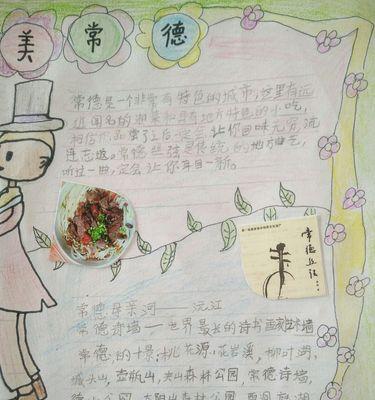 美常德
常德是一个非常有特色的城市,这里有远
近闻名的湘菜和具有地方特色的小吃,
相信你品尝了之后一定会让你回味无穷,流
连忘返。常德丝弦是传统的地方曲艺,
听过一曲,定会让你耳目一新。
常德丝弦
常德母亲河——沅江
常德诗墙——世界最长的诗书画刻艺术墙
常德的十景:桃花源,花岩溪,柳叶湖,
城头山,壶瓶山,夹山森林公园,常德诗墙,
德山公园,太阳山森林公园,西洞庭湖